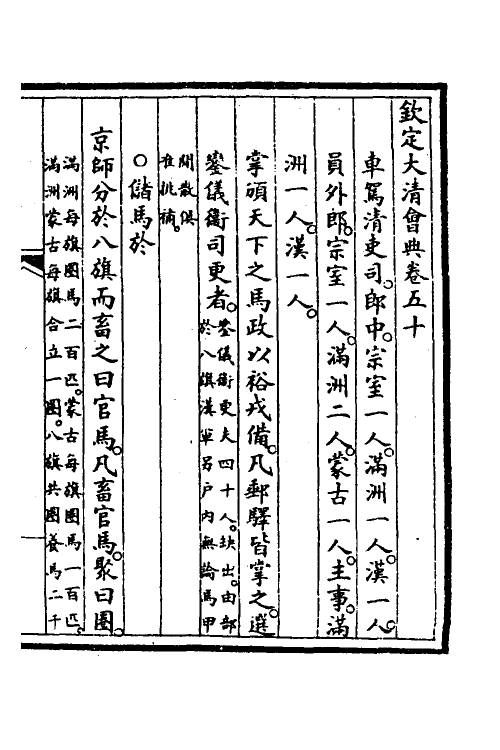 欽定大清會典卷五十
車駕清吏司郎中宗室一人滿洲一人漢一人
員外郎宗室一人滿洲二人蒙古一人主事滿
洲一人漢一人
掌頒天下之馬政以裕戎備凡郵驛皆掌之選
鑾儀衛司更者鑾儀衛更夫四十人缺出由部
於八旗漢軍另戶內無論馬甲
閒散俱
准挑補
○儲馬於
京師分於八旗而畜之曰官馬凡畜官馬聚曰圈
滿洲每旗圈馬二百匹蒙古每旗圈馬一百匹
滿洲蒙古每旗合立一圈八旗共圈養馬二千